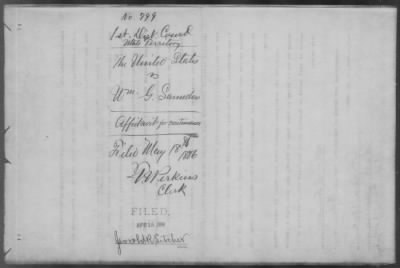 No. 799
1st. Dist. Court
Utah Territory
The United States
vs
Wm. G. Saunders
Affidavit for continuance
Filed May 18th
1886
Perkins
Clerk
FILED,
Jerrold R. Letcher